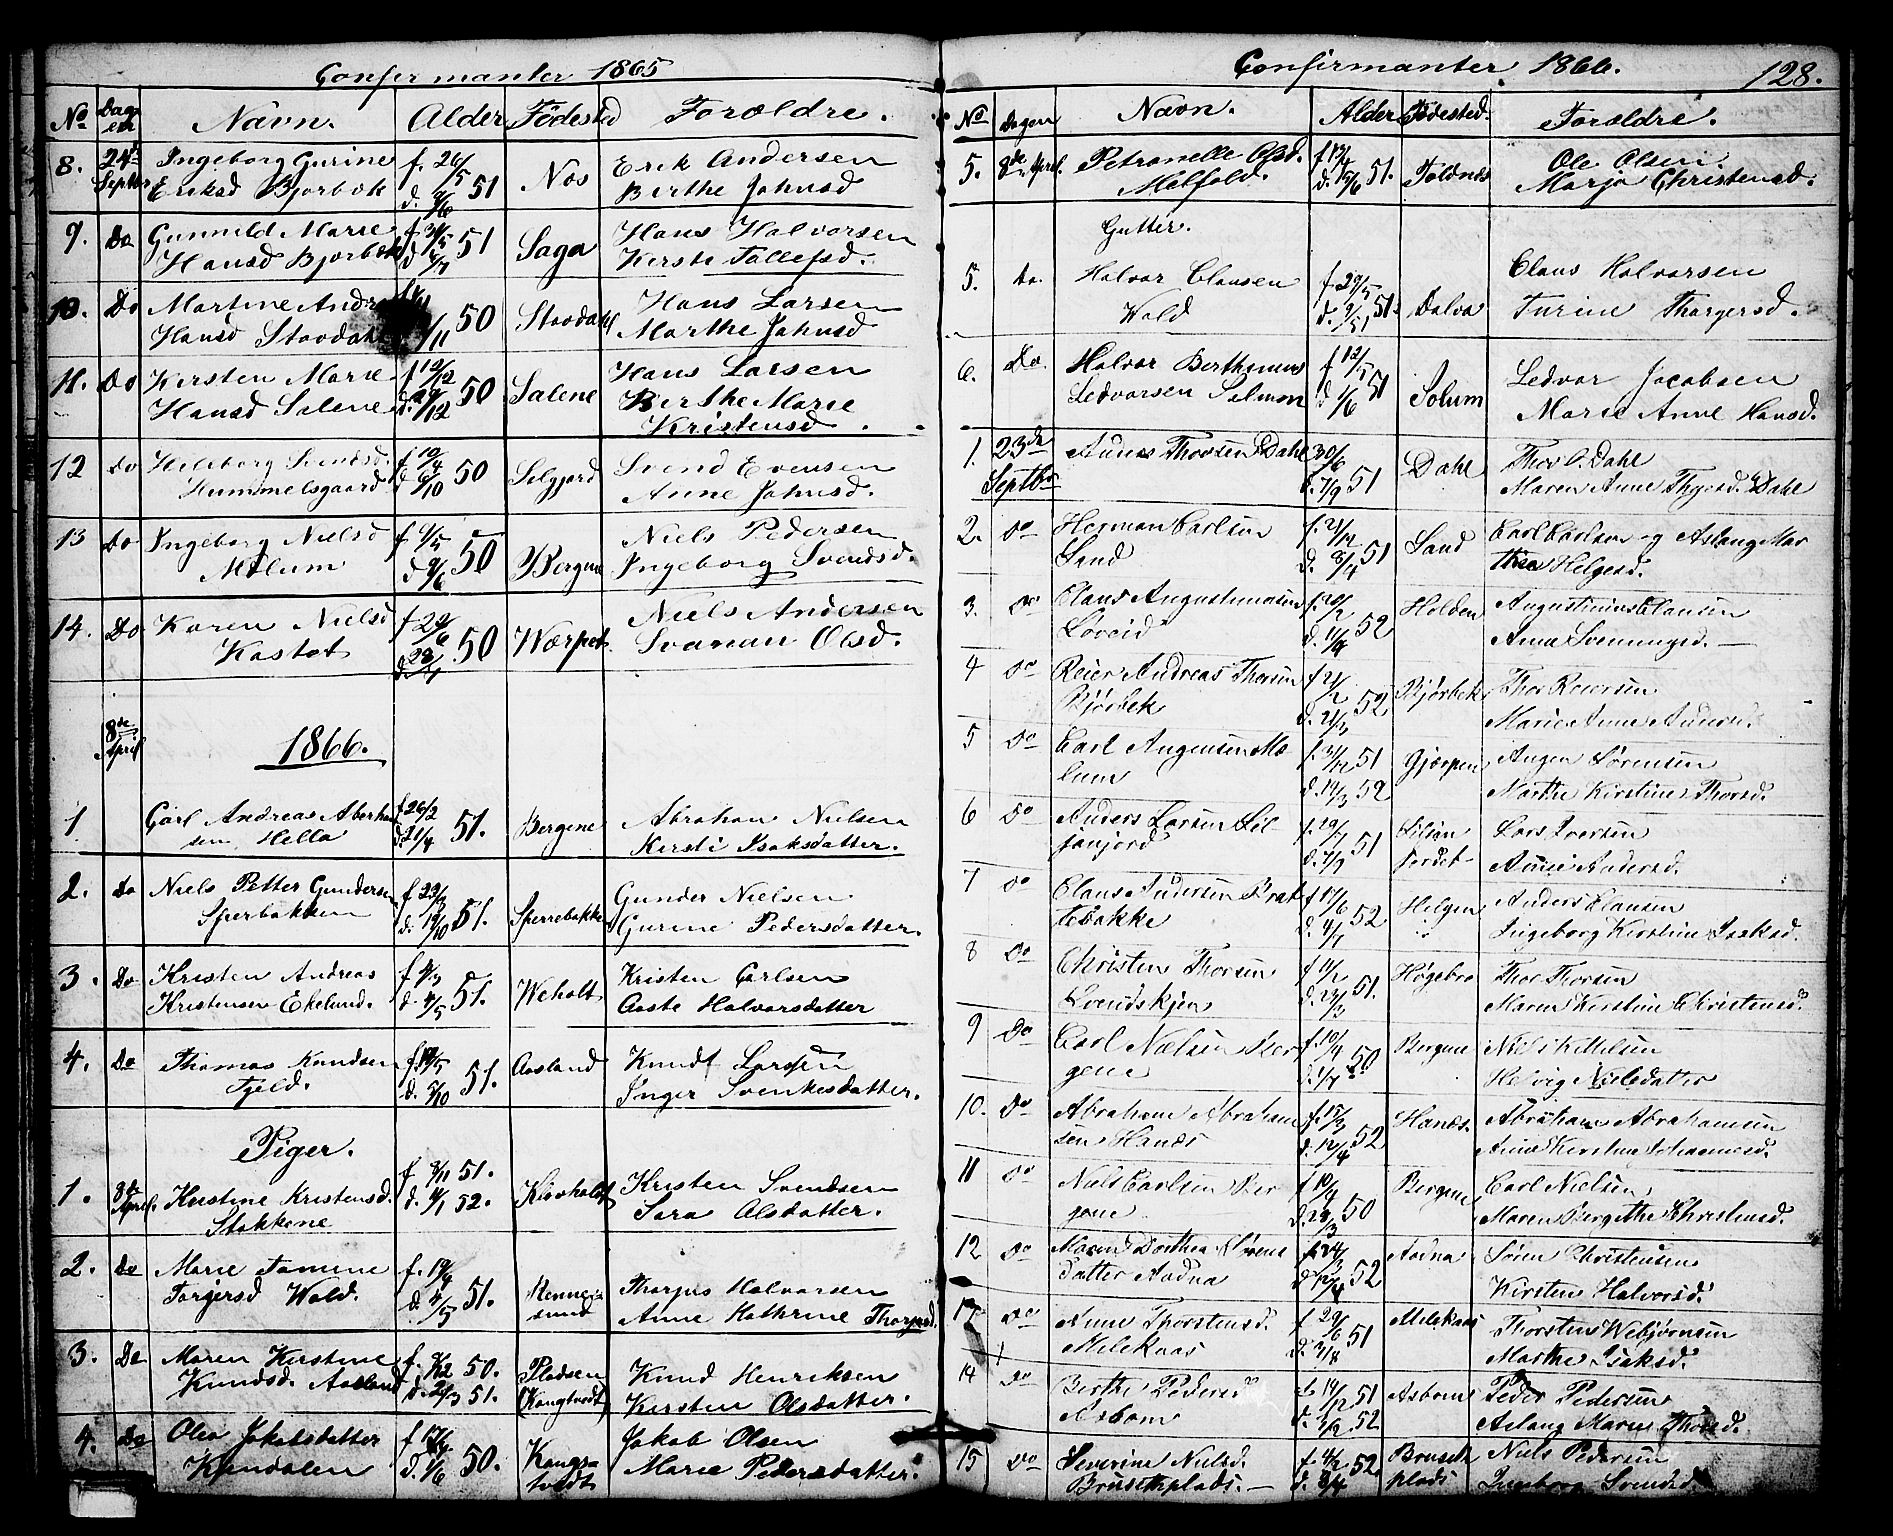 Confirmanter 1865
No Dagen Navn. Alder Fødested Forældre.
8. 24de Septbr Ingeborg Gurine f. 26/5 51 Nos Erik Andersen
Eriksd Bjorbek d. 9/6 Berthe Johnsd
9. Do Gunnild Marie f. 31/5 51 Saga Hans Halvorsen
Hansd Bjorbek d 6/7 Kirste Tollefsd.
10. Do Martine Andr 50 Stavdahl Hans Larsen
Hansd Stavdahl /11 Marthe Johnsd
11. Do Kirsten Marie f 12/12 50 Salene Hans Larsen
Hansd Salene d. 29/12 Berthe Marie
Kristensd.
12 Do Heleborg Svendsd. f 10/4 50 Selgjord Svend Evensen
Hummelsgaard d 6/10 Anne Johnsd.
13 Do Ingeborg Nielsd f 1/5 50 Bergene Niels Pedersen
Mælum d 9/6 Ingeborg Svendsd.
14. Do Karen Nielsd f 29/6 50 Værpet Niels Andersen
Kastet d 28/7 Svanau Olsd.
8de April 1866.
1 Carl Andreas Abraham f 26/2 51. Bergene Abraham Nielsen
sen Hella d. 21/4 Kersti Isaksdatter.
2. Do Niels Petter Gundersen f 23/8 51. Sperrebakken Gunder Nielsen
Sperbakken d. 19/10 Gurine Pedersdatter.
3. Do Kristen Andreas f 9/3 51. Weholt Kristen Carlsen
Kristensen Ekelund. d. 4/5 Aaste Halvorsdatter
4. Do Thomas Knudsen f. 51. Aasland Knudt Larssen
Fjeld. d. 5/10 Inger Svenkesdatter.
Piger.
1. 8de April. Kirstine Kristensd. f. 8/11 51. Klovholdt Kristen Svendsen
Stokkene d. 4/1 52. Sara Olsdatter.
2. Do Marie Tomine f. 19/4 51. Rennesund Thorgus Halvorsen
Torgersd Wold. d. 4/5 Anne Kathrine Thorsd.
3. Do Maren Kirstine f. 9/12 50. Pladsen Knud Henriksen
Knudsd. Aasland d. 2/3 51. (Kongtvedt) Kirsten Olsdatter.
4. Do Olea Jakobsdatter f 50. Kongs- Jakob Olsen
Kjendalen d. 1/6 tvedt Marie Pedersdatter.
Confirmanter 1866. 128.
No Dagen Navn. Alder Fødested. Forældre.
5. 8de April. Petronelle Olsd. f 13/4 51. Foldnes Ole Olsen.
Melfald. d. 15/6 Marja Christensd.
Gutter.
5. Do. Halvor Clausen f. 29/5 Claus Halvorsen
Wold d. 51. Dalva Turine Thorgersd.
6. Do. Halvor Berthinius f 12/5 51 Solum Ledvor Jacobsen
Ledvorsen Selmon d 1/6 Marie Anne Hansd.
1. 23de Septbr Anders Thorsen Dahl 30/6 Dahl Thor O. Dahl
d. 7/9 51 Maren Anne Thgersd. Dahl
2. Do Herman Carlsen f. 21/12 Sand Carl Carlsen og Aslaug Mar
Sand d. 8/4 51 thea Helgesd.
3. Do Claus Augustinusen f. 20/2 52 Holden Augustinius Clausen
Løveid d. 11/4 Anna Svenningsd. —
4 Do Reier Andreas Thorsen f 2/2 52 Bjørbek Thor Reiersen
Bjørbek d. 21/3 Marie Anne Andersd.
5 Do Carl Augensen Mæ f. 31/12 51 Gjerpen Augen Sørensen
lum d. 14/3 52 Marthe Kirstine Thorsd.
6 Do Anders Larsen Lil- f. 29/7 51 Liljan Lars Iversen
janjord d. 7/9 jordet Anne Andersd.
7 Do Claus Andersen Brat f 17/6 52 Helgen Anders Clausen
tebakke d. 4/7 Ingeborg Kirstine Isaksd.
8 Do Christen Thorsen f 1/2 51. Høgebro Thor Thorsen
Svendskjen d. 23/3 Maren Kirstine Christensd.
9 Do Carl Nielsen Ber f. 10/4 50 Bergene Niels Kittelsen
gene d. 1/7 Helvig Nielsdatter
10. Do Abraham Abraham f. 15/3 52 Hanæs. Abraham Abrahamsen
sen Hanæs d. 12/4 Anne Kirstine Johannesd.
11 Do Niels Carlsen Ber f 10/4 50 Bergene Carl Nielsen
gene d. 28/3 Maren Bergithe Christensd.
12 Do Maren Dorthea Sørens f. 24/3 52 Aadna Søren Christensen
datter Aadna d 12/4 Kirsten Halvorsd.
13 Do Anne Thorstensd. f 29/6 51 Melekaas Thorsten Webjørnsen
Melekaas d. 3/8 Marthe Isaksd.
14 Do Berthe Pedersd f. 14/12 51 Asbom Peder Pedersen
Asbom d. 1/2. 52. Aslaug Marie Thorsd.
15 Do Severine Nielsd. f. 4/2 52. Bruseth- Niels Pedersen
Brusethplads. — d. 8/4 plads Ingeborg Svendsd.